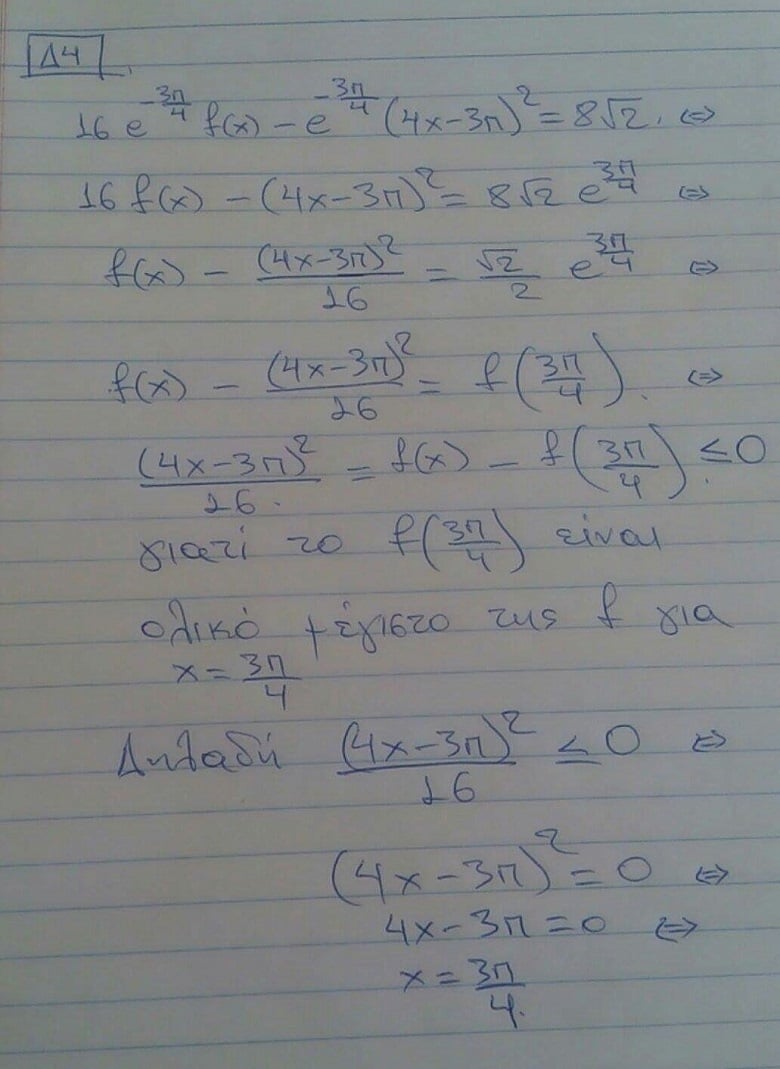 Δ4
16 e^{-3π/4} f(x) - e^{-3π/4} (4x-3π)^2 = 8√2. ⇔
16 f(x) - (4x-3π)^2 = 8√2 e^{3π/4} ⇔
f(x) - (4x-3π)^2/16 = √2/2 e^{3π/4} ⇔
f(x) - (4x-3π)^2/16 = f(3π/4). ⇔
(4x-3π)^2/16. = f(x) - f(3π/4) ≤ 0
γιατί το f(3π/4) είναι
ολικό μέγιστο της f για
x = 3π/4
Δηλαδή (4x-3π)^2/16 ≤ 0 ⇔
(4x-3π)^2 = 0 ⇔
4x-3π = 0 ⇔
x = 3π/4.